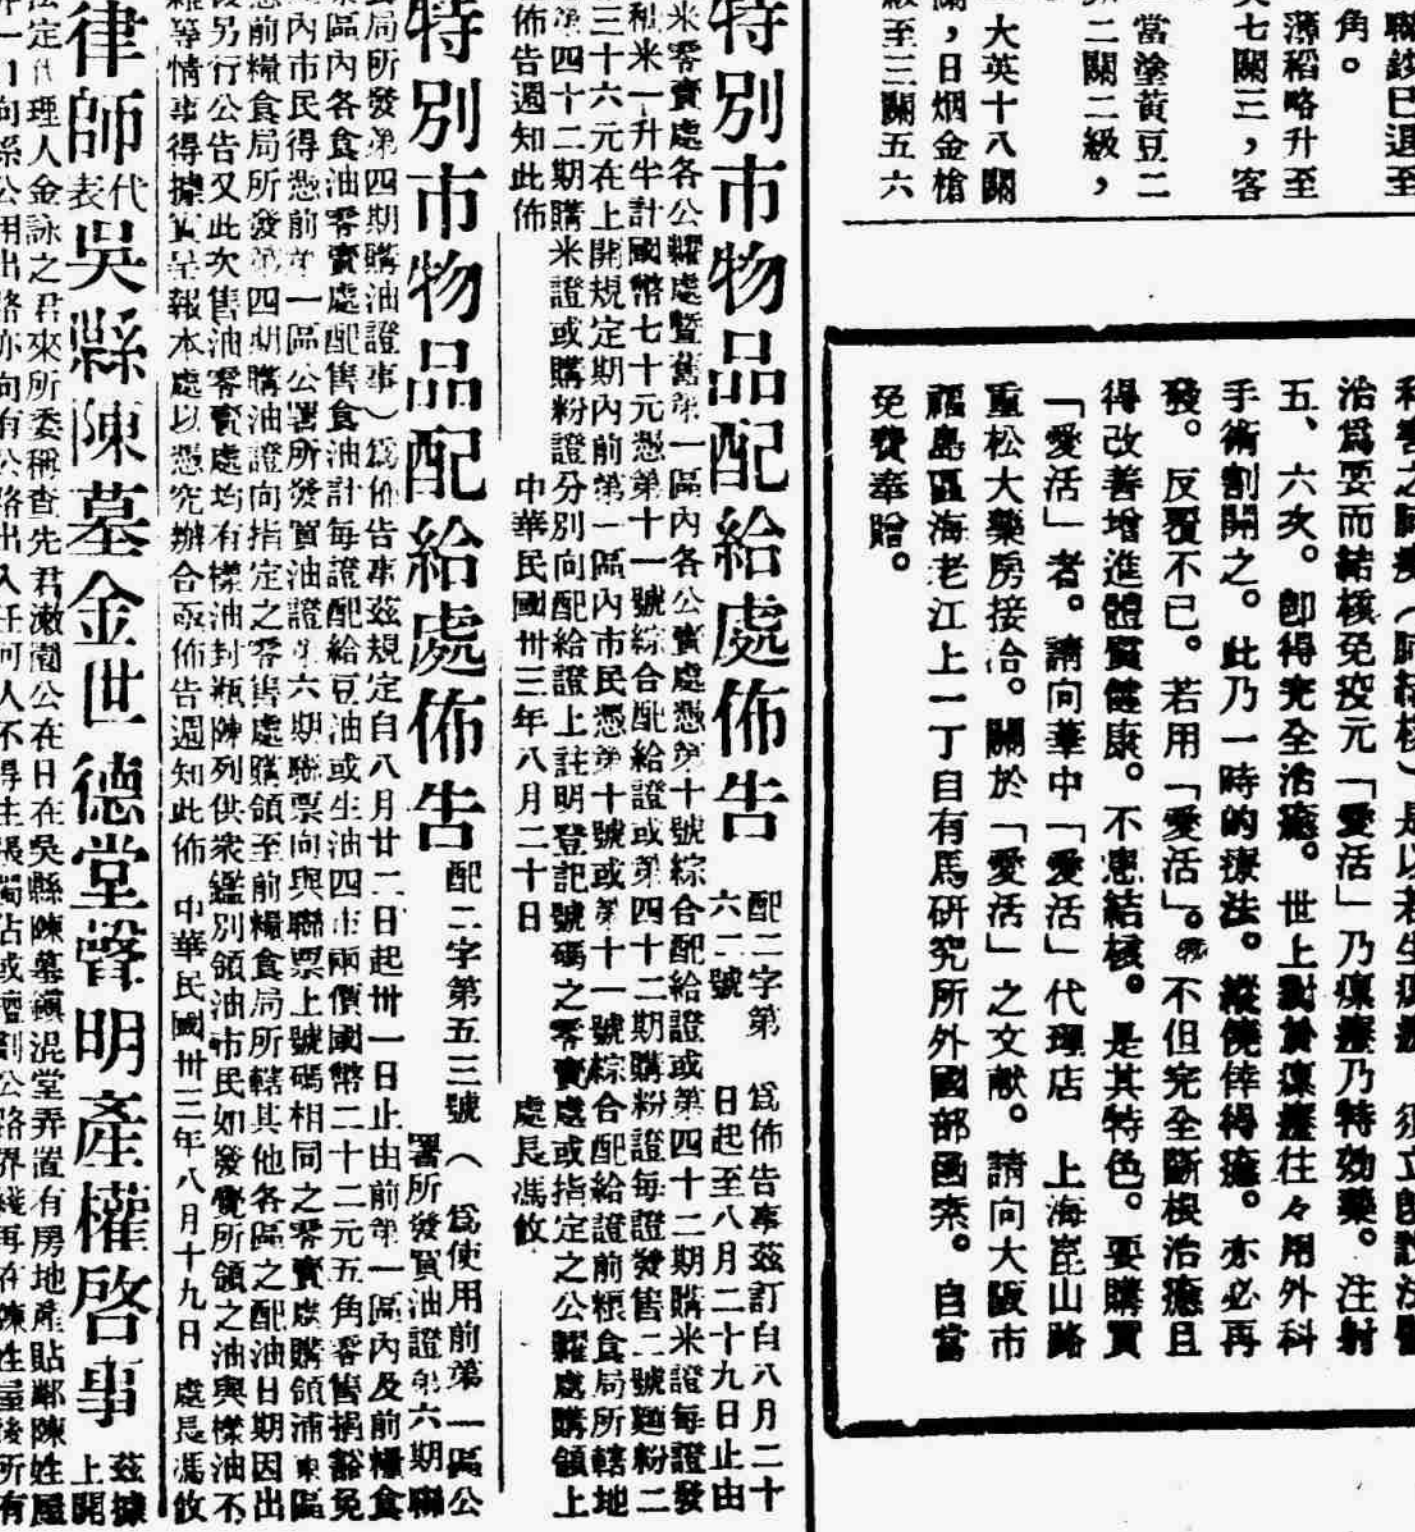 聯鈔已遇至
角。
薄稻略升至
七關三，客
當塗黃豆二
二關二級，
大英十八關
，日烟金槍
級至三關五六
治爲要而結核免疫元「愛活」乃瘰癧乃特効藥。注射
五、六次。卽得完全治癒。世上對於瘰癧往々用外科
手術割開之。此乃一時的療法。縱僥倖得癒。亦必再
發。反覆不已。若用「愛活」。不但完全斷根治癒且
得改善增進體質健康。不患結核。是其特色。要購買
「愛活」者。請向華中「愛活」代理店 上海崑山路
重松大藥房接洽。關於「愛活」之文献。請向大阪市
福島區海老江上一丁目有馬研究所外國部函索。自當
免費奉贈。
特別市物品配給處佈告 配二字第六二號
爲佈告事茲訂自八月二十
日起至八月二十九日止由
米零賣處各公糶處暨舊第一區內各公賣處憑第十號綜合配給證或第四十二期購米證每證發
和米一升半計國幣七十元憑第十一號綜合配給證或第四十二期購粉證每證發售二號麵粉二
三十六元在上開規定期內前第一區內市民憑第十號或第十一號綜合配給證前粮食局所轄地
第四十二期購米證或購粉證分別向配給證上註明登記號碼之零賣處或指定之公糶處購領上
佈告週知此佈 中華民國卅三年八月二十日 處長馮攸
特別市物品配給處佈告 配二字第五三號
（爲使用前第一區公
署所發買油證第六期聯
局所發第四期購油證事）爲佈告事茲規定自八月廿二日起卅一日止由前第一區內及前糧食
區內各食油零賣處配售食油計每證配給豆油或生油四市兩價國幣二十二元五角零售捐豁免
內市民得憑前第一區公署所發買油證第六期聯票向與聯票上號碼相同之零賣處購領浦東區
憑前糧食局所發第四期購油證向指定之零售處購領至前糧食局所轄其他各區之配油日期因出
另行公告又此次售油零賣處均有樣油封瓶陳列供衆鑑別領油市民如發覺所領之油與樣油不
等情事得據實呈報本處以憑究辦合亟佈告週知此佈 中華民國卅三年八月十九日 處長馮攸
律師代表吳縣陳墓金世德堂聲明產權啓事 茲據上開
法定代理人金詠之君來所委稱查先君漱園公在日在吳縣陳墓鎮混堂弄置有房地產貼鄰陳姓屋
向係公用出路亦向有公路出入任何人不得主張獨佔或擅割公路界綫再在陳姓屋後所有